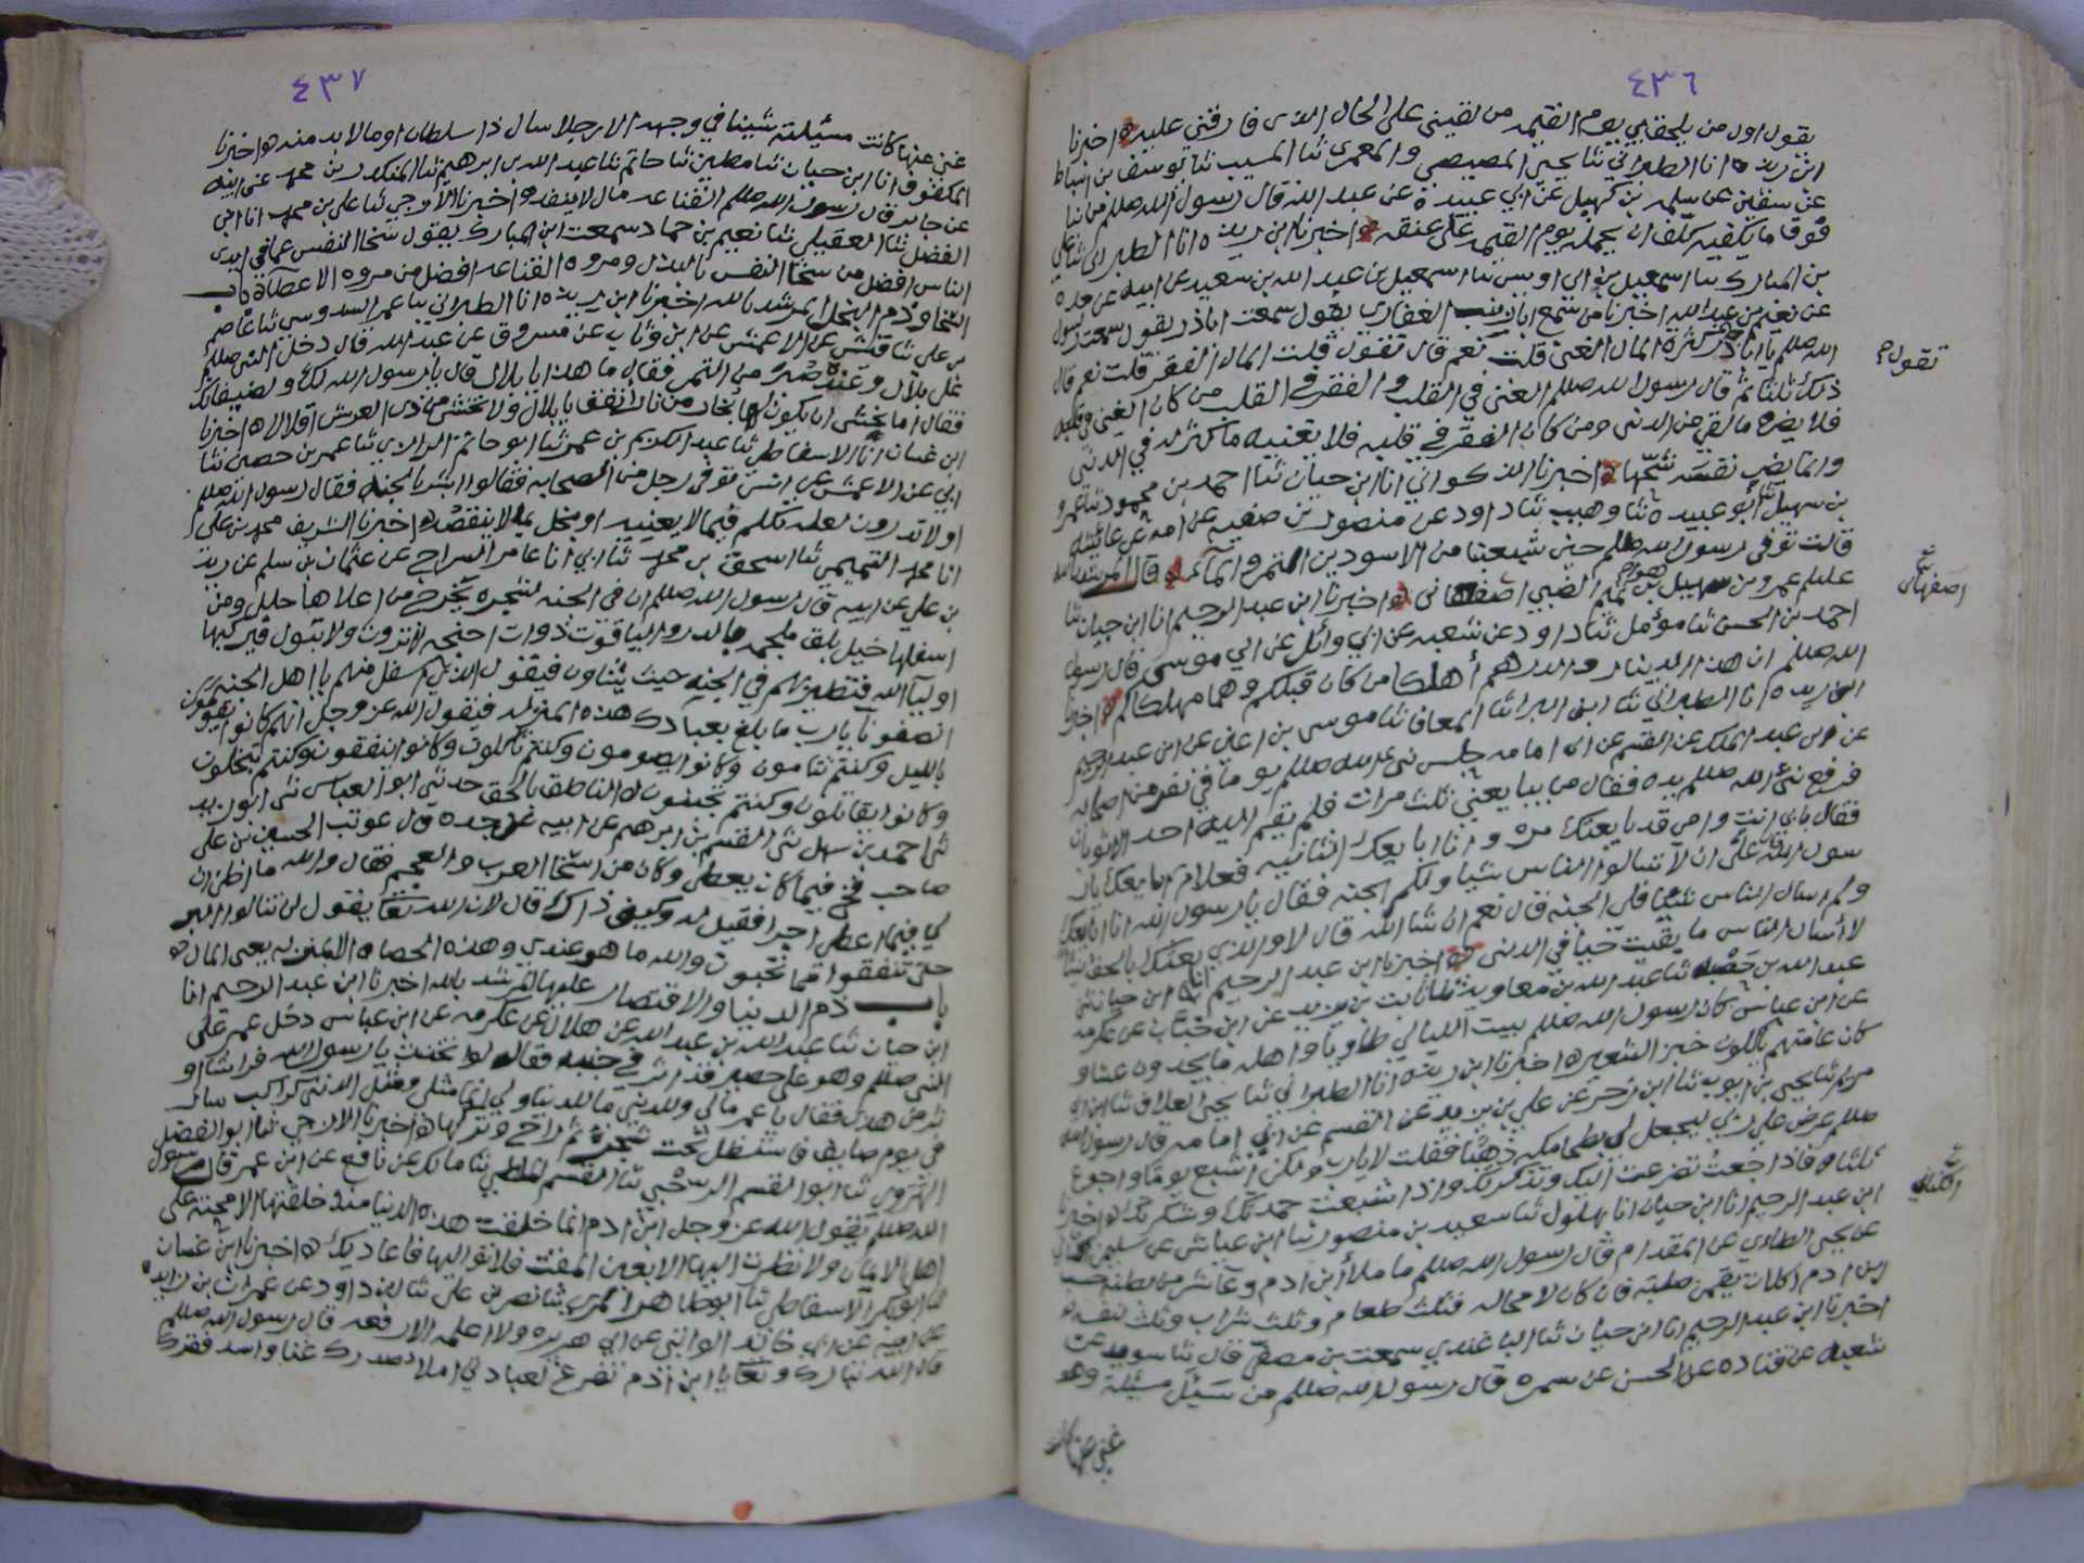 ٤٣٦
يقول اول من يلحق بي يوم القيمه من لقيني على الحال الذي فارقني عليه ه اخبرنا
ابن ريذه انا الطبراني ثنا يحيى المصيصي والمعمرى ثنا المسيب ثنا يوسف بن اسباط
عن سفين عن سلمه بن كهيل عن ابي عبيدة عن عبد الله قال رسول الله صللم من بنا
فوق ما يكفيه كلف ان يحمله يوم القيمه على عنقه ه اخبرنا ابن ريذه انا الطبراني ثنا علي
بن المبارك ثنا اسمعيل بن ابي اويس ثنا اسمعيل بن عبد الله بن سعيد عن ابيه عن جده
عن نعيم بن عبد الله اخبرنا من سمع ابا زينب الغفاري يقول سمعت اباذر يقول سمعت رسول
الله صللم يا اباذر كثرة المال الغنى قلت نعم قال تقول قلت المال الفقر قلت نعم قال
تقول؟
ذلك ثلثا ثم قال رسول الله صللم الغنى في القلب والفقر في القلب من كان الغنى في قلبه
فلا يضره ما لقي من الدنى ومن كان الفقر في قلبه فلا يغنيه ما كثر له في الدنى
وانما يضر نفسه شحها ه اخبرنا الذكواني انا ابن حيان ثنا احمد بن محمود ثنا عمرو
بن سهيل ثنا ابو عبيده ثنا وهيب ثنا داود عن منصور بن صفيه عن امه عن عائشه
قالت توفي رسول الله صللم حين شبعنا من الاسودين التمر والماء ه قال المرشد بالله
علىلم عمرو بن سهيل بن تميم الضبي اصفهاني ه اخبرنا ابن عبد الرحيم انا ابن حيان ثنا
اصفهاني
احمد بن الحسن ثنا مؤمل ثنا داود عن شعبه عن ابي وائل عن ابي موسى قال رسول
الله صللم ان هذا الدينار والدرهم أهلكا من كان قبلكم وهما مهلكاكم ه اخبرنا
ابن ريذه انا الطبراني ثنا ابن البرا ثنا المعافا ثنا موسى بن اعين عن ابن عبد الرحيم
عن ابن عبد الملك عن القسم عن ابي امامه جلس نبي الله صللم يوما في نفر من اصحابه
فرفع نبي الله صللم يده فقال من يبايعني ثلث مرات فلم يقم اليه احد الا ثوبان
فقال بابي انت وامي قد بايعتك مره وانا ابايعك الثانيه فعلام ابايعك يار
سول الله قال على ان لا تسالوا الناس شيا ولكم الجنه فقال يا رسول الله انا ابايعك
ولم اسال الناس شيئا فلي الجنه قال نعم ان شا الله قال لا والذي بعثك بالحق نبيا
لا أسال الناس ما بقيت حيا في الدنى ه اخبرنا ابن عبد الرحيم انا ابن حيان ثنى
عبد الله بن ثنا عبد الله بن معاويه ثنا ثابت بن يزيد عن ابن خباب عن عكرمه
عن ابن عباس كان رسول الله صللم يبيت الليالي طاويا واهله ما يجدون عشا و
كان عامتهم ياكلون خبز الشعير ه اخبرنا ابن ريذه انا الطبراني ثنا يحيى العلاف ثنا ابن ابي
مريم ثنا يحيى بن ايوب ثنا ابن زحر عن علي بن يزيد عن القسم عن ابي امامه قال رسول الله
صللم عرض على ربي ليجعل لي بطحا مكه ذهبا فقلت لا يارب ولكن أشبع يوما واجوع
ثلثا ه فاذا جعت تضرعت اليك وتذكرتك واذا شبعت حمدتك وشكرتك ه اخبرنا
ابن عبد الرحيم انا ابن حيان انا بهلول ثنا سعيد بن منصور ثنا ابن عياش عن سليمن الكناني
الكناني
عن يحيى الطائي عن المقدام قال رسول الله صللم ما ملأ ابن ادم وعا شر من بطنه حسب
ابن ادم اكلات يقمن صلبه فان كان لا محاله فثلث طعام وثلث شراب وثلث لنفسه ه
اخبرنا ابن عبد الرحيم انا ابن حيان ثنا الباغندي سمعت بن مصفى قال ثنا سويد عن
شعبه عن قتاده عن الحسن عن سمره قال رسول الله صللم من سئل مسئلة وهو
غني عنها كانت
٤٣٧
غني عنها كانت مسئلته شينا في وجهه الا رجلا سال ذا سلطان او ما لا بد منه ه اخبرنا
المكفوف انا ابن حيان ثنا مطين ثنا حاتم ثنا عبد الله بن ابرهيم ثنا المنكدر بن محمد عن ابيه
عن جابر قال رسول الله صللم القناعه مال لا ينفد ه اخبرنا الازجي ثنا علي بن محمد انا ابي
الفضل ثنا العقيلي ثنا نعيم بن حماد سمعت ابن المبارك يقول سخا النفس عما في ايدي
الناس افضل من سخا النفس بالبذل ومروه القناعه افضل من مروه الاعطآ ه باب
السخا وذم البخل المرشد بالله اخبرنا ابن ريذه انا الطبراني ثنا عمر السدوسي ثنا عاصم
بن علي ثنا قيس عن الاعمش عن ابن وثاب عن مسروق عن عبد الله قال دخل النبي صللم
على بلال وعنده صبر من التمر فقال ما هذا يا بلال قال يا رسول الله لك ولضيفانك
فقال اما تخشى ان يكون لها بخار من نار انفق يا بلال ولا تخش من ذي العرش اقلالا ه اخبرنا
ابن غسان انا الاسفاطي ثنا عبد الكريم بن عمر ثنا ابو حاتم الرازي ثنا عمر بن حصين ثنا
ابي عن الاعمش عن انس توفي رجل من الصحابه فقالوا ابشر بالجنه فقال رسول الله صللم
اولا تدرون لعله تكلم فيما لا يعنيه او بخل بما لا ينقصه ه اخبرنا الشريف محمد بن علي
انا محمد التميمي ثنا اسحق بن محمد ثنا ابي انا عامر السراج عن عثمان بن سلم عن زيد
بن علي عن ابيه قال رسول الله صللم ان في الجنه لشجره يخرج من اعلاها حلل ومن
اسفلها خيل بلق ملجمه بالدر والياقوت ذوات اجنحه لا تروث ولا تبول فيركبها
اوليآ الله فتطير بهم في الجنه حيث يشاون فيقول الذين اسفل منهم يا اهل الجنه
انصفونا يارب ما بلغ بعبادك هذه المنزله فيقول الله عز وجل انهم كانوا يقومون
بالليل وكنتم تنامون وكانوا يصومون وكنتم تاكلون وكانوا ينفقون وكنتم تبخلون
وكانوا يقاتلون وكنتم تجبنون ه الناطق بالحق حدثني ابو العباس ثني ابو زيد
ثني احمد بن سهل ثني القسم بن ابرهم عن ابيه عن جده قال عوتب الحسين بن علي
صاحب فخ فيما كان يعطي وكان من اسخا العرب والعجم فقال والله ما اظن ان
لي فيما اعطي اجرا فقيل له وكيف ذاك قال لان الله تعا يقول لن تنالوا البر
حتى تنفقوا مما تحبون والله ما هو عندي وهذه الحصاه الا بمنزله يعني المال ه
باب ذم الدنيا والاقتصار عليها المرشد بالله اخبرنا ابن عبد الرحيم انا
ابن حيان ثنا عبد الله بن عبد الله عن هلال عن عكرمه عن ابن عباس دخل عمر على
النبي صللم وهو على حصير قد اثر في جنبه فقال لو اتخذت يا رسول الله فراشا او
ثر من هذا فقال يا عمر مالي وللدنيى ما للدنيا ولي انما مثلي ومثل الدنى كراكب سار
في يوم صايف فاستظل تحت شجرة ثم راح وتركها ه اخبرنا الازجي ثنا ابو الفضل
الهروي ثنا ابو القسم الرسحبي ثنا القسم الملطي ثنا مالك عن نافع عن ابن عمر قال رسول
الله صللم يقول الله عز وجل ابن ادم انما خلقت هذه الدنيا منذ خلقتها الا محنة على
اهل الايمان ولا نظرت اليها الا بعين المقت فلا توالها فاعاديك ه اخبرنا ابن غسان
ثنا ابو بكر الاسفاطي ثنا ابو طاهر المري ثنا نصر بن علي ثنا ابن داود عن عمران بن زايده
عن ابيه عن ابي خالد الوالبي عن ابي هريره ولا اعلمه الا رفعه قال رسول الله صللم
قال الله تبارك وتعا يا ابن ادم تفرغ لعبادتي املا صدرك غنا واسد فقرك